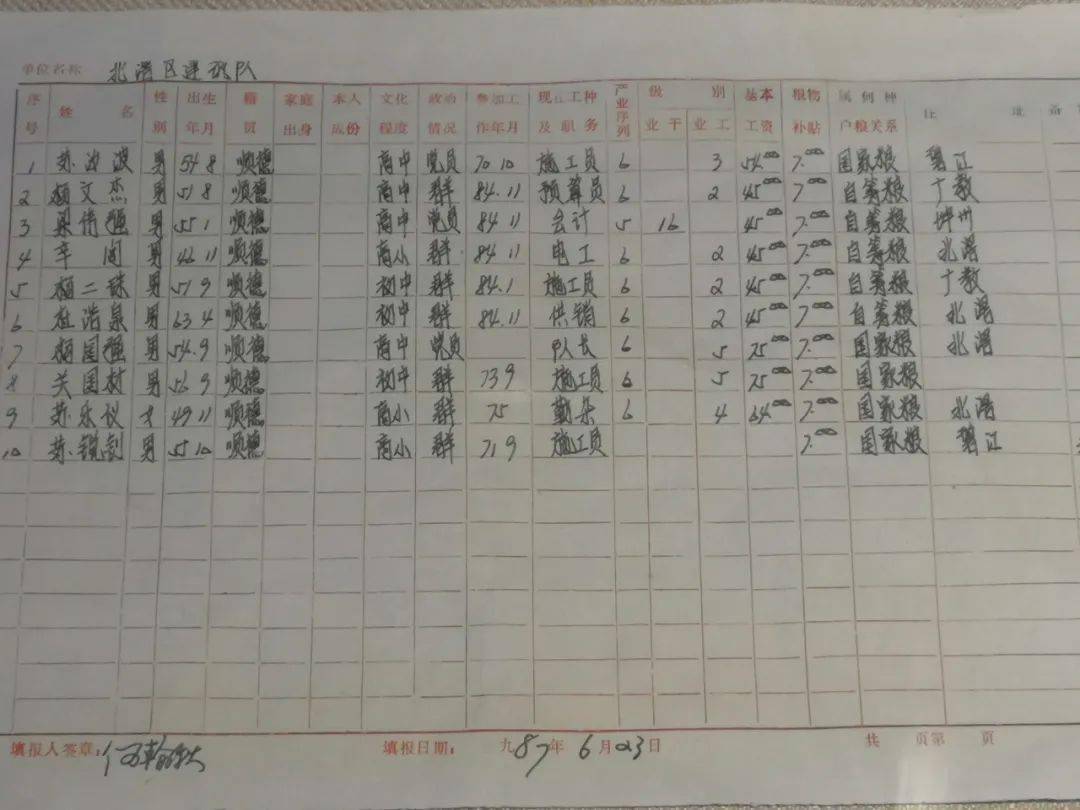 单位名称 北滘区建筑队
序号 姓名 性别 出生年月 籍贯 家庭出身 本人成份 文化程度 政治情况 参加工作年月 现在工种及职务 产业序列 级别 业干 业工 基本工资 粮物补贴 属何种户粮关系 住地 备
1 男 54 8 顺德 高中 党员 70 10 施工员 6 3 54.00 7.00 国家粮 碧江
2 文杰 男 51 8 顺德 高中 群 84.11 预算员 6 2 45.00 7.00 自筹粮 广教
3 梁 强 男 55 1 顺德 高中 党员 84 11 会计 5 16 45.00 7.00 自筹粮
4 男 46 11 顺德 高小 群 84 11 电工 6 2 45.00 7.00 自筹粮 北滘
5 二 男 57 9 顺德 初中 群 84.1 施工员 6 2 45.00 7.00 自筹粮 广教
6 浩泉 男 63 4 顺德 初中 群 84.11 供销 6 2 45.00 7.00 自筹粮 北滘
7 国强 男 54.9 顺德 高中 党员 队长 6 5 75.00 7.00 国家粮 北滘
8 关国材 男 56 9 顺德 初中 群 73 9 施工员 6 5 75.00 7.00 国家粮
9 苏乐仪 49 11 顺德 高小 群 75 勤杂 6 4 64.00 7.00 国家粮 北滘
10 苏锐 男 55 10 顺德 高小 群 71 9 施工员 7.00 国家粮 碧江
填报人签章： 何 填报日期： 九87年6月23日 共 页第 页